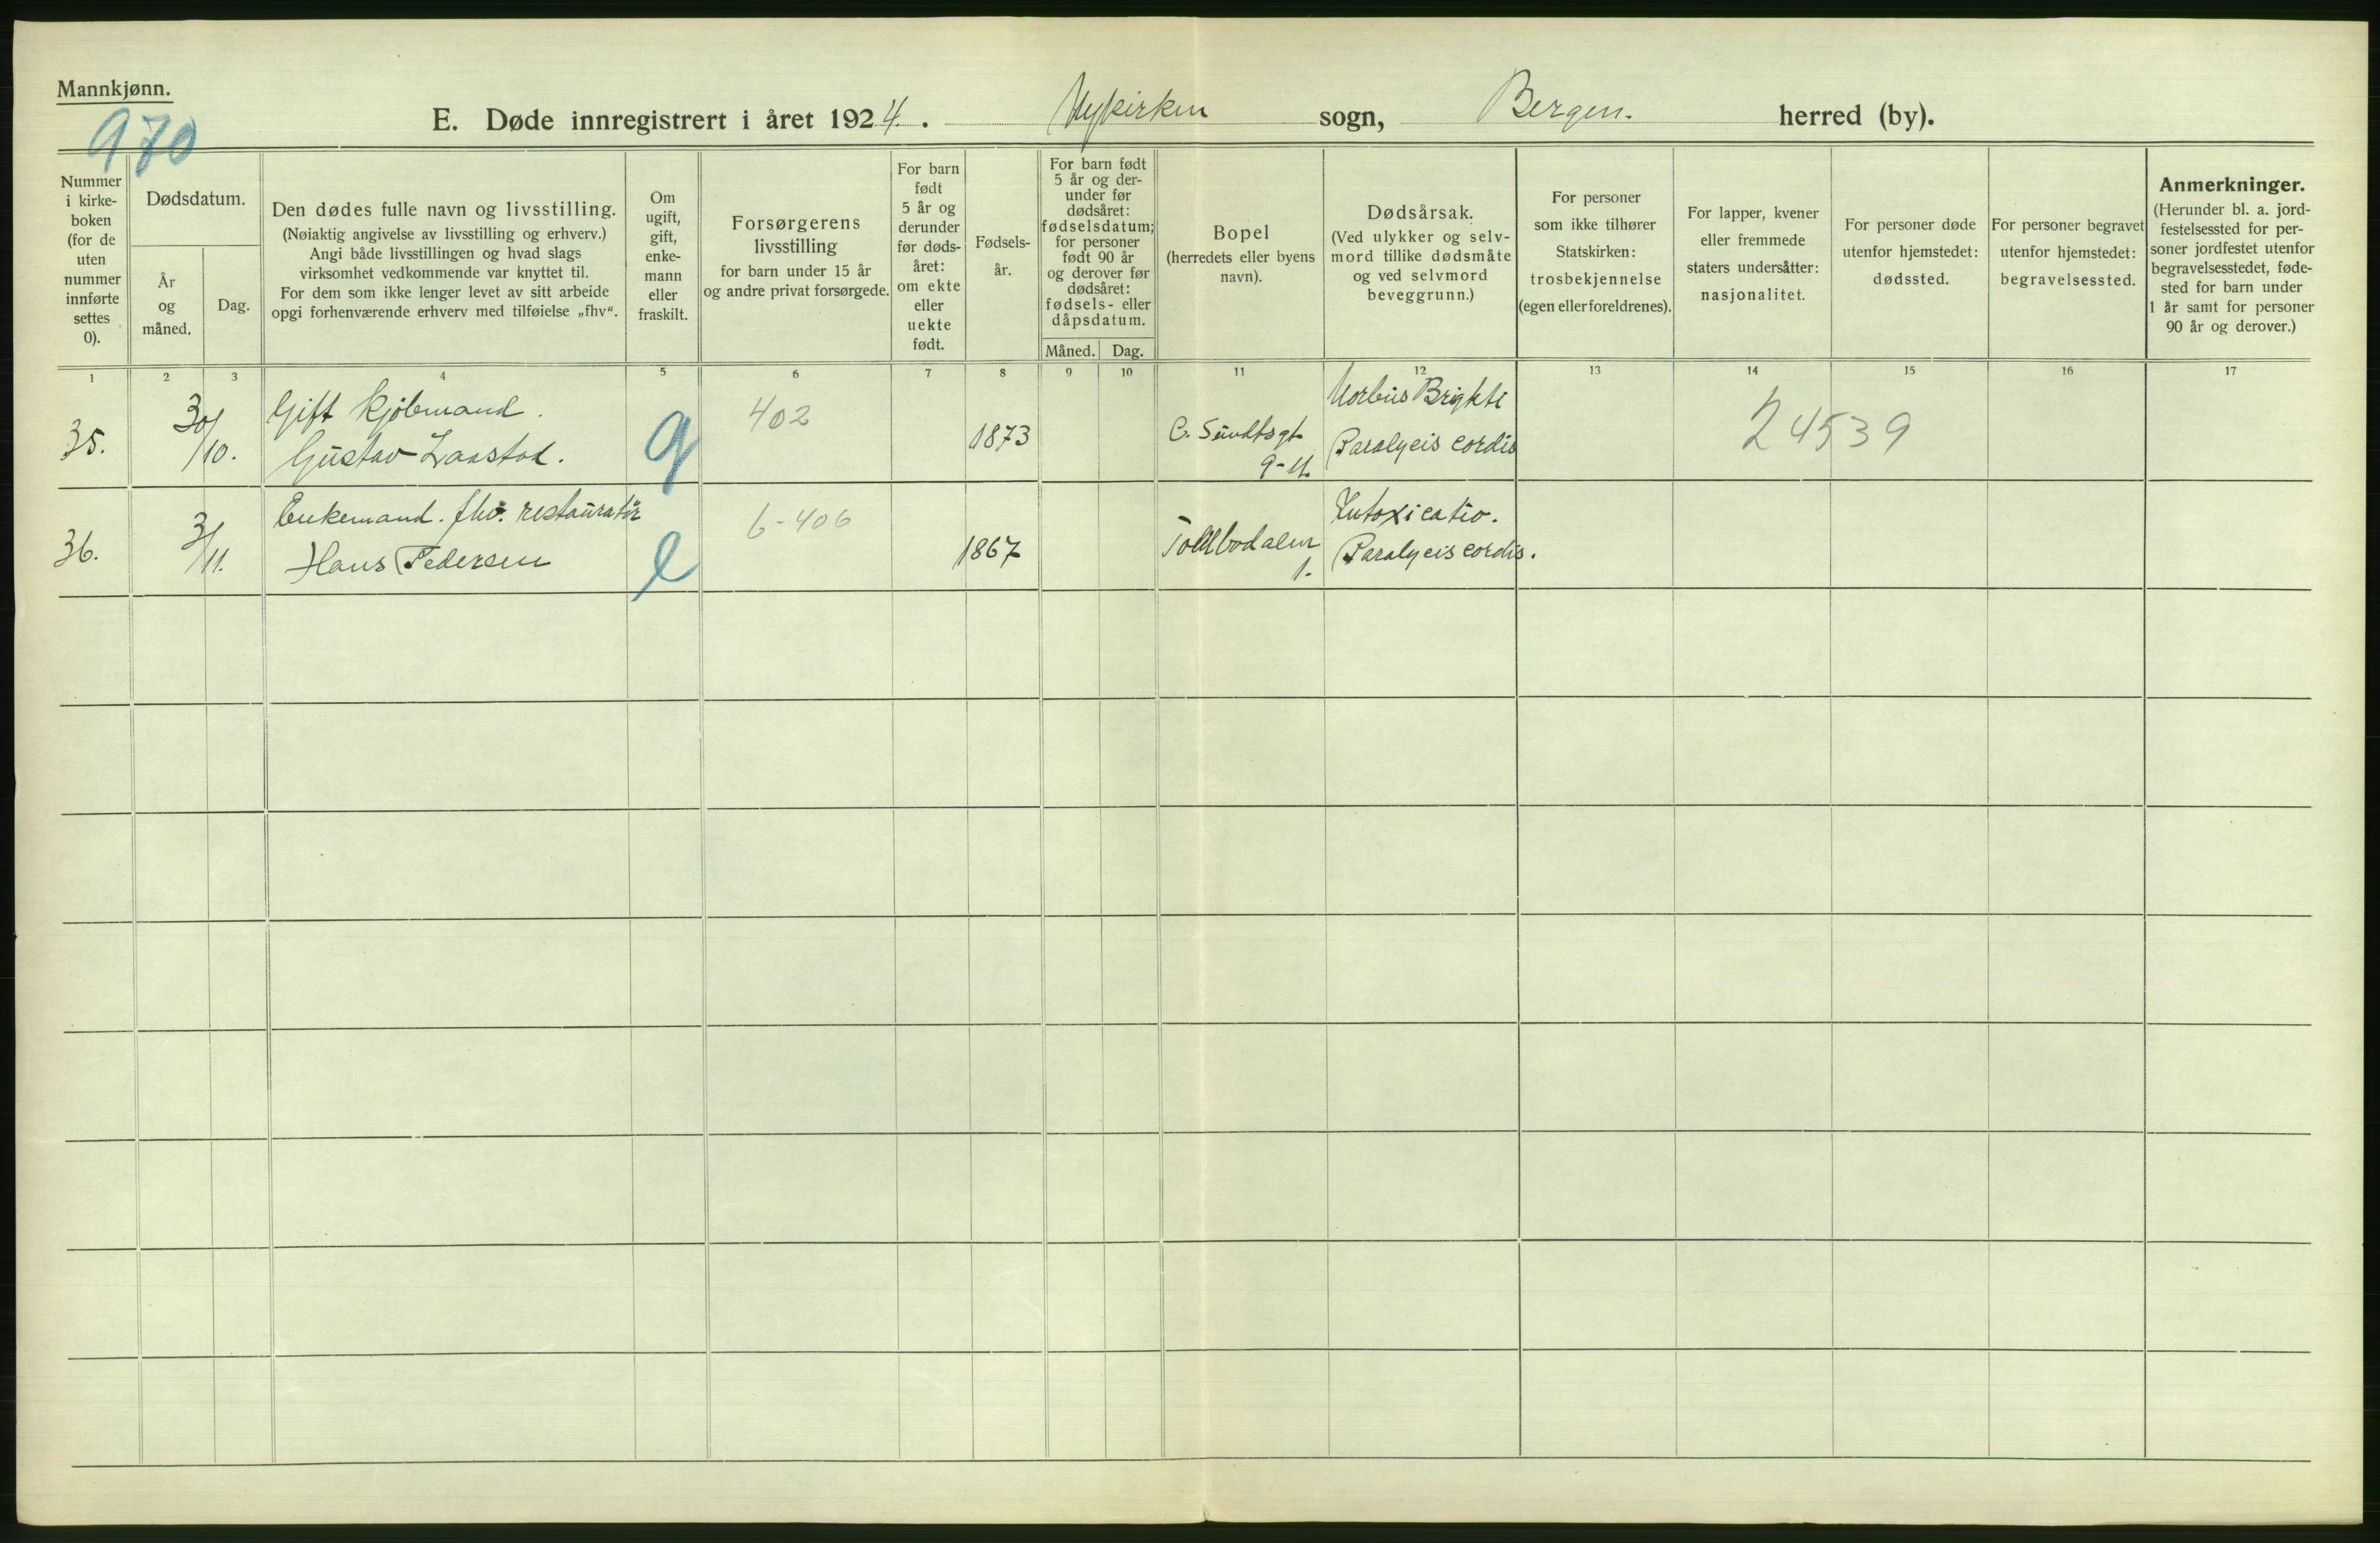 Mannkjønn.
970
E. Døde innregistrert i året 1924. Nykirken sogn, Bergen. herred (by).
Nummer
i kirke-
boken
(for de
uten
nummer
innførte
settes
0).
Dødsdatum.
År
og
måned.
Dag.
Den dødes fulle navn og livsstilling.
(Nøiaktig angivelse av livsstilling og erhverv.)
Angi både livsstillingen og hvad slags
virksomhet vedkommende var knyttet til.
For dem som ikke lenger levet av sitt arbeide
opgi forhenværende erhverv med tilføielse „fhv“.
Om
ugift,
gift,
enke-
mann
eller
fraskilt.
Forsørgerens
livsstilling
for barn under 15 år
og andre privat forsørgede.
For barn
født
5 år og
derunder
før døds-
året:
om ekte
eller
uekte
født.
Fødsels-
år.
For barn født
5 år og der-
under før
dødsåret:
fødselsdatum;
for personer
født 90 år
og derover før
dødsåret:
fødsels- eller
dåpsdatum.
Måned. Dag.
Bopel
(herredets eller byens
navn).
Dødsårsak.
(Ved ulykker og selv-
mord tillike dødsmåte
og ved selvmord
beveggrunn.)
For personer
som ikke tilhører
Statskirken:
trosbekjennelse
(egen eller foreldrenes).
For lapper, kvener
eller fremmede
staters undersåtter:
nasjonalitet.
For personer døde
utenfor hjemstedet:
dødssted.
For personer begravet
utenfor hjemstedet:
begravelsessted.
Anmerkninger.
(Herunder bl. a. jord-
festelsessted for per-
soner jordfestet utenfor
begravelsesstedet, føde-
sted for barn under
1 år samt for personer
90 år og derover.)
1 2 3 4 5 6 7 8 9 10 11 12 13 14 15 16 17
35.
30/10.
Gift kjøbmand.
Gustav Laastad.
g
402
1873
C. Sundtsgt
9-11
Morbus Brigkti
Paralycis cordis
24539
36.
3/11.
Enkemand. fhv. restauratør
Hans Pedersen
e
6-406
1867
Toldbodalm
1.
Intoxicatio.
Paralycis cordis.